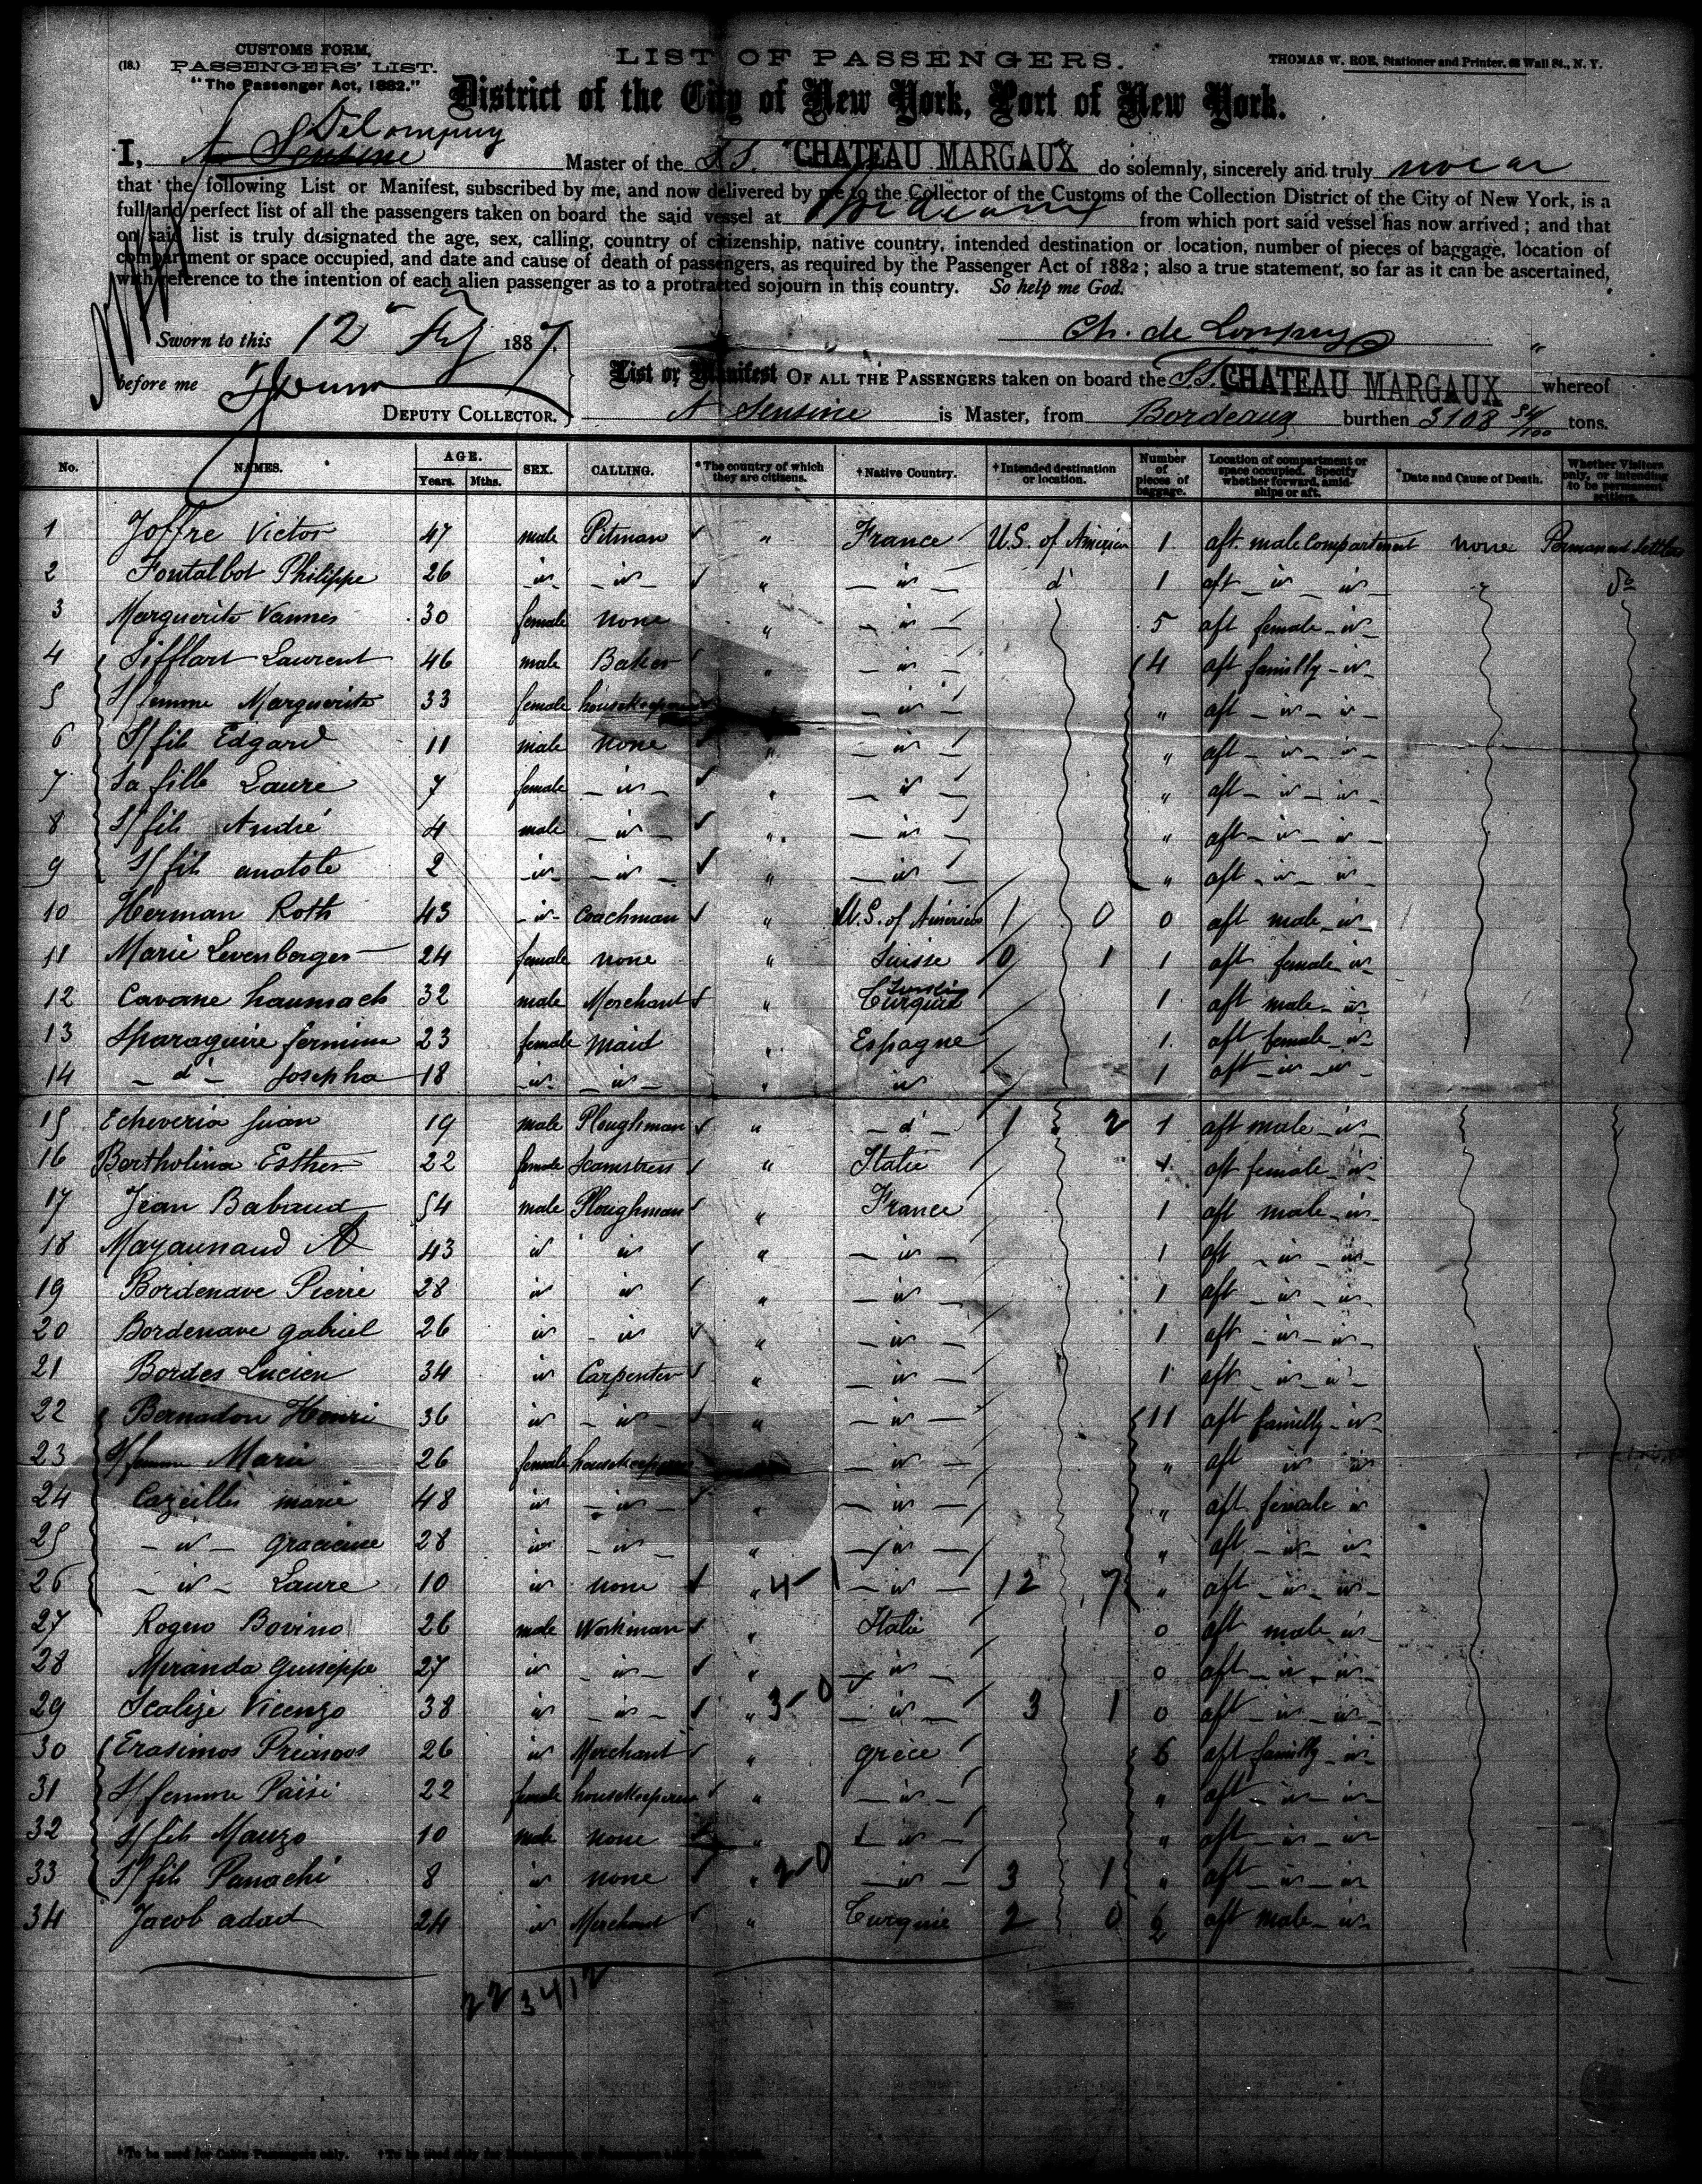 CUSTOMS FORM.
(18.) PASSENGERS' LIST.
"The Passenger Act, 1882."
LIST OF PASSENGERS.
THOMAS W. ROE, Stationer and Printer, 65 Wall St., N. Y.
District of the City of New York, Port of New York.
I, A Sensine Master of the S.S. CHATEAU MARGAUX do solemnly, sincerely and truly swear
that the following List or Manifest, subscribed by me, and now delivered by me to the Collector of the Customs of the Collection District of the City of New York, is a
full and perfect list of all the passengers taken on board the said vessel at Bordeaux from which port said vessel has now arrived; and that
on said list is truly designated the age, sex, calling, country of citizenship, native country, intended destination or location, number of pieces of baggage, location of
compartment or space occupied, and date and cause of death of passengers, as required by the Passenger Act of 1882; also a true statement, so far as it can be ascertained,
with reference to the intention of each alien passenger as to a protracted sojourn in this country. So help me God.
Sworn to this 12 1887.
before me
DEPUTY COLLECTOR.
List or Manifest OF ALL THE PASSENGERS taken on board the S.S. CHATEAU MARGAUX whereof
A Sensine is Master, from Bordeaux burthen 3108 54/100 tons.
No. NAMES. AGE. Years. Mths. SEX. CALLING. *The country of which they are citizens. †Native Country. †Intended destination or location. Number of pieces of baggage. Location of compartment or space occupied. Specify whether forward, amidships or aft. *Date and Cause of Death. Whether Visitors only, or intending to be permanent settlers.
1 Joffre Victor 47 male Pitman " France U.S. of America 1 aft male compartment none Permanent Settlers
2 Fontalbot Philippe 26 id id " id d 1 aft id id " do
3 Marguerite Vannes 30 female none " id 5 aft female id
4 Sifflart Laurent 46 male Baker " id 4 aft familly id
5 S/ femme Marguerite 33 female housekeeper " id " aft id id
6 S/ fils Edgard 11 male none " id " aft id id
7 Sa fille Laure 7 female id " id " aft id id
8 S/ fils André 4 male id " id " aft id id
9 S/ fils anatole 2 id id " id " aft id id
10 Herman Roth 43 id Coachman " U.S. of America 1 0 0 aft male id
11 Marie Levenberger 24 female none " Suisse 0 1 1 aft female id
12 Cavane haumach 32 male Merchant " Turquie 1 aft male id
13 Sparaguire fermina 23 female maid " Espagne 1 aft female id
14 d Josepha 18 id id " id 1 aft id id
15 Echeveria Juan 19 male Ploughman " d 1 2 1 aft male id
16 Bertholina Esther 22 female seamstress " Italie 1 aft female id
17 Jean Babaud 54 male Ploughman " France 1 aft male id
18 Mayaunaud A 43 id id " id 1 aft id id
19 Bordenave Pierre 28 id id " id 1 aft id id
20 Bordenave gabriel 26 id id " id 1 aft id id
21 Bordes Lucien 34 id Carpenter " id 1 aft id id
22 Bernadou Henri 36 id id " id 11 aft familly id
23 S/ femme Marie 26 female housekeeper id " aft id id
24 Cazeilles marie 48 id id " id " aft female id
25 id gracieuse 28 id id " id " aft id id
26 id Laure 10 id none " 4-1 id 12 7 " aft id id
27 Rogero Bovino 26 male Workman " Italie 0 aft male id
28 Miranda Guiseppe 27 id id " id 0 aft id id
29 Scalize Vicenzo 38 id id " 3-0 id 3 1 0 aft id id
30 Erasimos 26 id Merchant " grèce 6 aft familly id
31 S/ femme Paisi 22 female housekeeper " id " aft id id
32 S/ fils Mauzo 10 male none " id " aft id id
33 S/ fils Panachi 8 id none " 2-0 id 3 1 " aft id id
34 Jacob adad 24 id Merchant " Turquie 2 0 2 aft male id
22 34 12
*To be used for Cabin Passengers only.